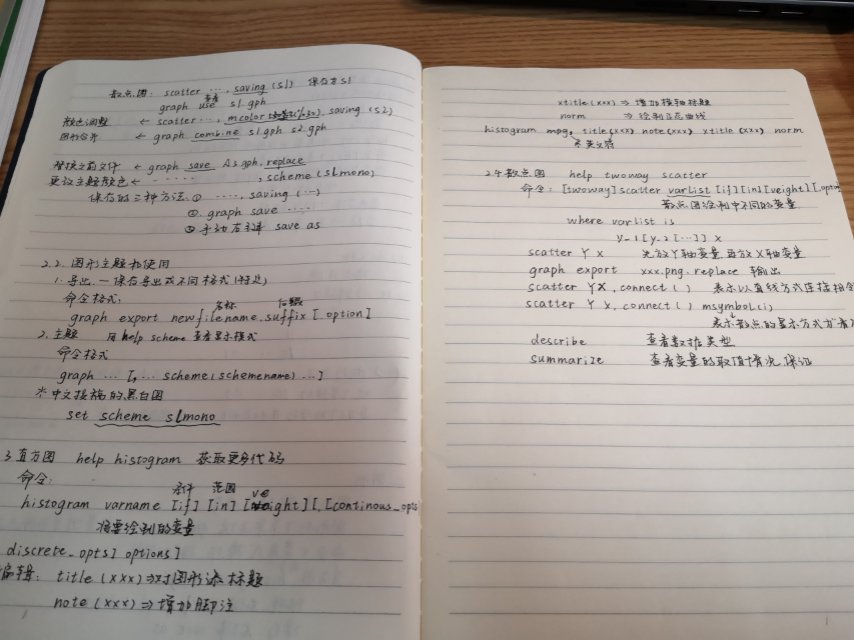 散点图: scatter …, saving (s1) 保存为s1
查看
graph use s1.gph
颜色调整 ← scatter…, mcolor , saving (s2)
图形合并 ← graph combine s1.gph s2.gph
替换之前文件 ← graph save As.gph, replace
更改主题颜色 ← ‥‥‥, scheme (s1mono)
保存的三种方法: ① ……, saving (…)
② graph save ……
③ 手动右键 save as
2.2. 图形主题和使用
1. 导出 一 保存导出成不同格式
命令格式:
名称 后缀
graph export newfilename.suffix [ option]
2. 主题 用 help scheme 查看显示模式
命令格式
graph … [, … scheme(schemename) …]
* 中文投稿的黑白图
set scheme s1mono
3 直方图 help histogram 获取更多代码
命令:
条件 范围
histogram varname [if] [in] [weight] [, [continous_opts
将要绘制的变量
discrete_opts] options]
编辑: title (xxx) ⇒ 对图形添标题
note (xxx) ⇒ 增加脚注
xtitle (xxx) ⇒ 增加横轴标题
norm ⇒ 绘制正态曲线
histogram mpg, title (xxx) note (xxx) xtitle (xxx) norm
2.4 散点图 help twoway scatter
命令: [twoway] scatter varlist [if] [in] [weight] [,opt
散点图绘制中不同的变量
where varlist is
y_1 [y_2 […]] x
scatter Y x 先放Y轴变量 再放X轴变量
graph export xxx.png, replace 输出
scatter Y X, connect ( ) 表示以直线方式连接相
scatter Y x, connect ( ) msymbol (i)
表示散点的显示方式
describe 查看数据类型
summarize 查看变量的取值情况 保证